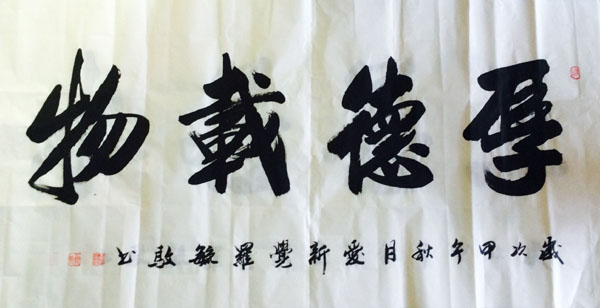 厚德載物
歲次甲午秋月愛新覺羅毓敭书